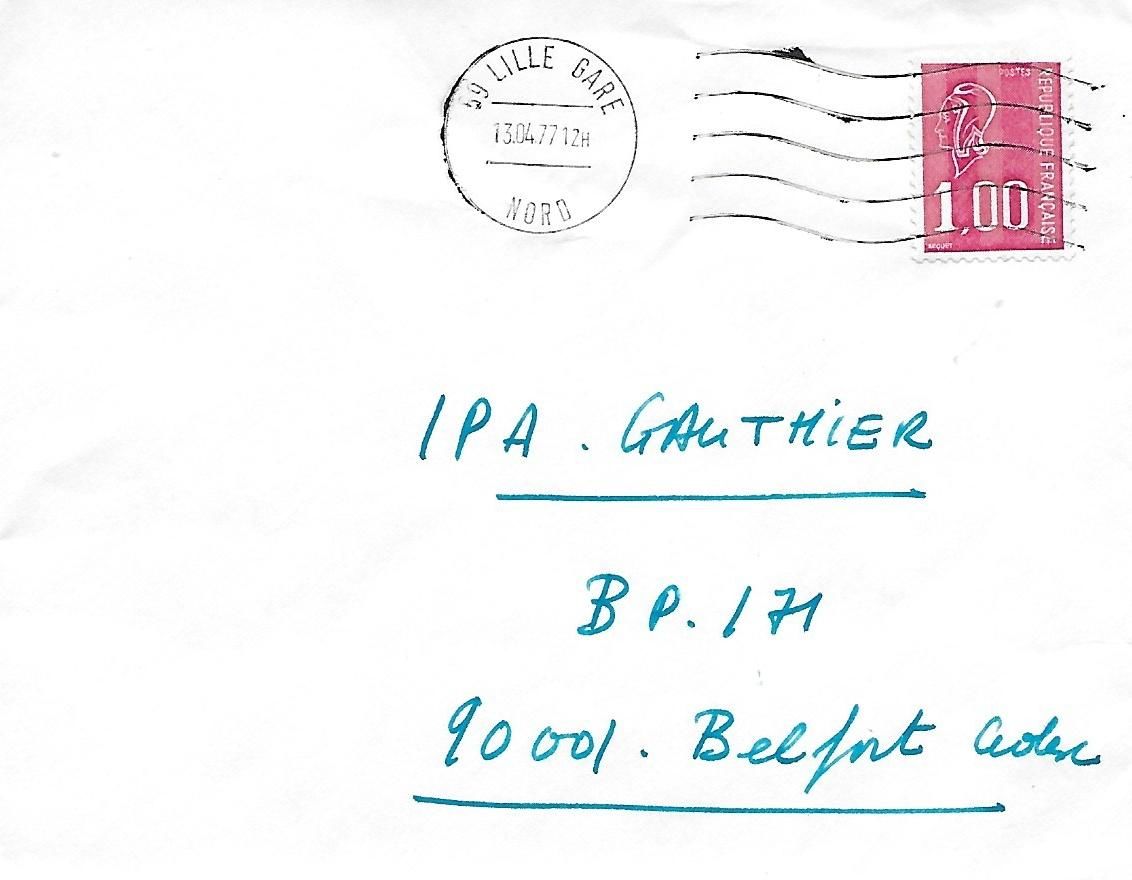 59 LILLE GARE
13.04.77 12H
NORD
POSTES
REPUBLIQUE FRANÇAISE
1,00
BEQUET
IPA. GAUTHIER
BP. 171
90001. Belfort Cedex